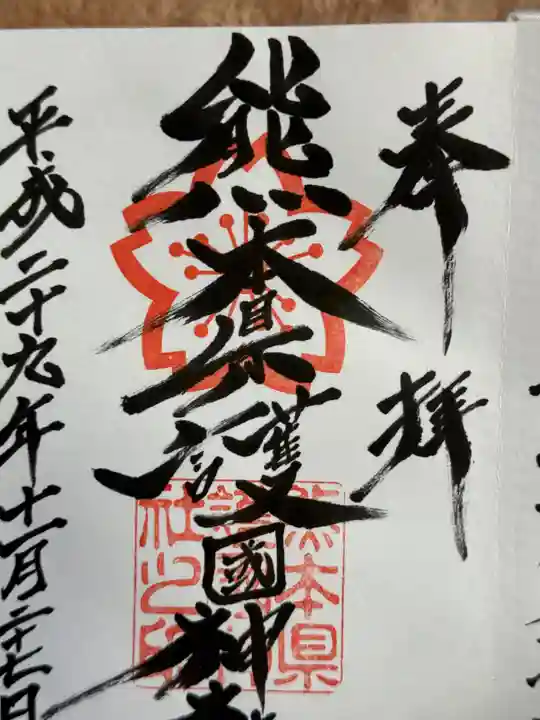 奉拝
熊本県護國神
熊本県
護國神
社之印
平成二十九年十一月二十七日